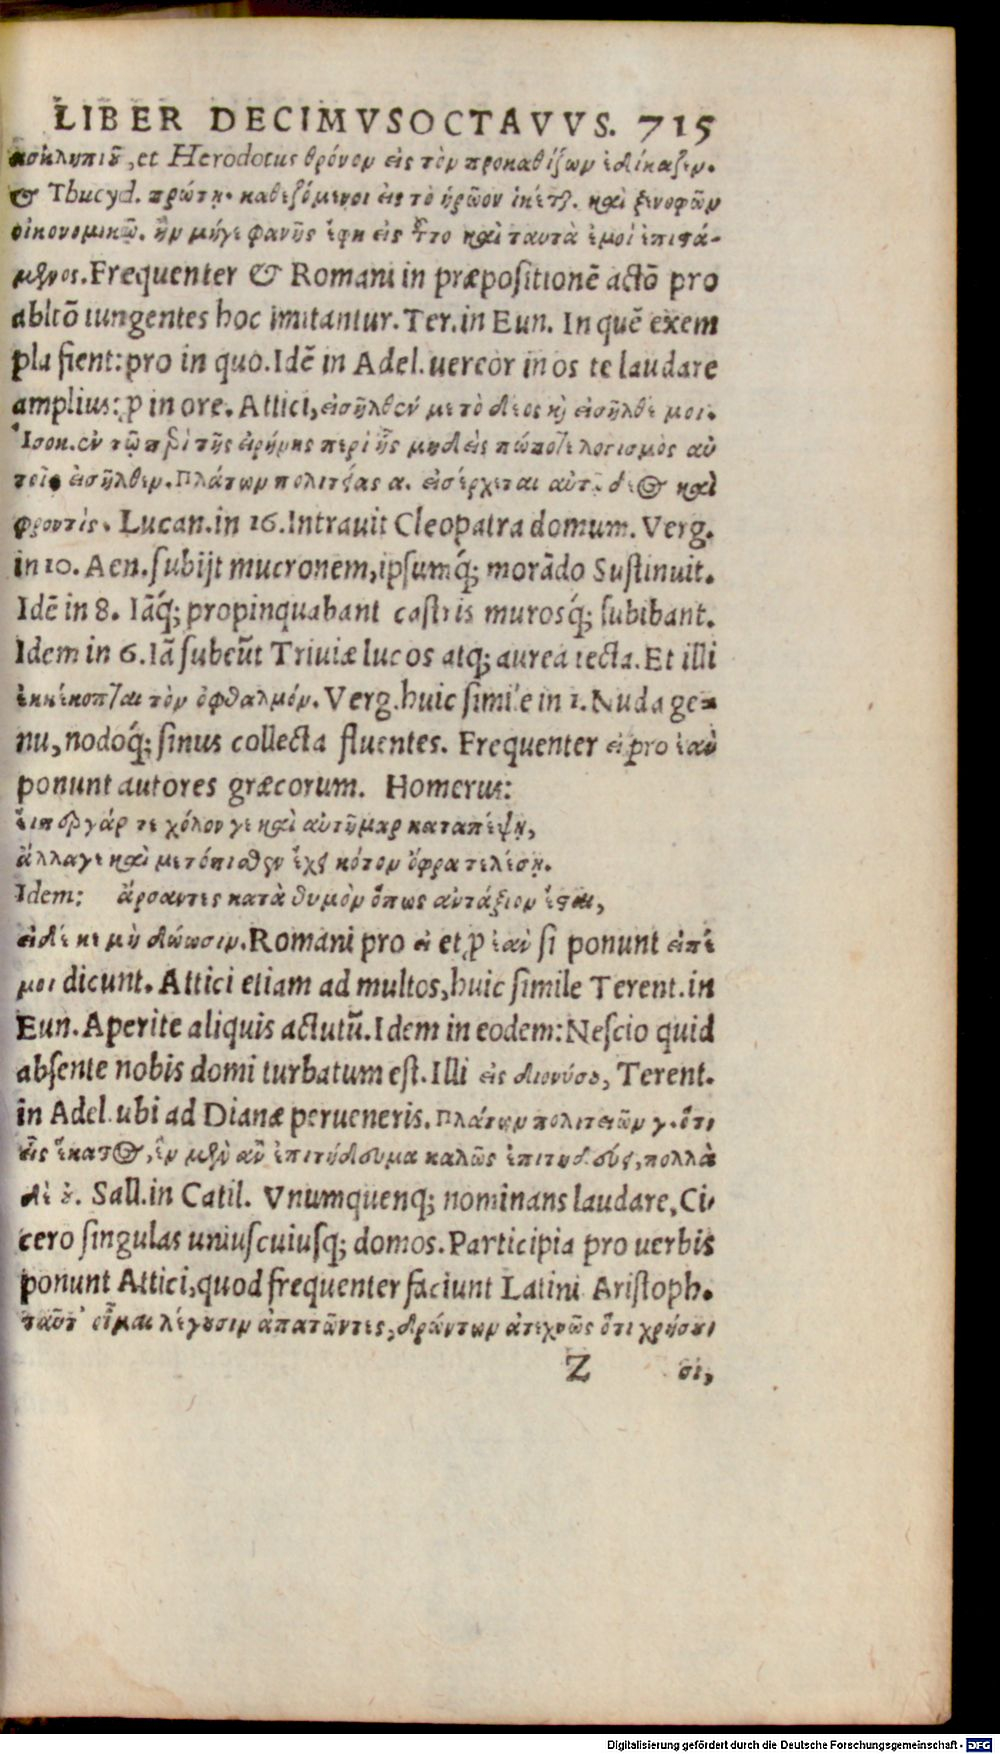 LIBER DECIMVSOCTAVVS. 715
ἀσκληπιοῦ, et Herodotus θρόνον εἰς τὸν προκαθίζων ἐδίκαζεν.
& Thucyd. πρώτῃ. καθεζόμενοι εἰς τὸ ἡρῷον ἱκέται. καὶ ξενοφῶν
οἰκονομικῷ. ἢν μήγε φανῇς ἔφη εἰς τοῦτο καὶ ταυτὰ ἐμοὶ ἐπιστά-
μενος. Frequenter & Romani in præpositionē actō pro
abltō iungentes hoc imitantur. Ter. in Eun. In quē exem
pla fient: pro in quo. Idē in Adel. uereor in os te laudare
amplius: ꝓ in ore. Attici, εἰσῆλθεν με τὸ δέος κὶ εἰσῆλθέ μοι.
Ἰσοκ. ἐν τῷ περὶ τῆς εἰρήνης περὶ ἧς μηδεὶς πώποτε λογισμὸς αὐ
τοῖς εἰσῆλθεν. Πλάτων πολιτείας α. εἰσέρχεται αὐτῷ δέος καὶ
φροντὶς. Lucan. in 16. Intrauit Cleopatra domum. Verg.
in 10. Aen. subijt mucronem, ipsumq́; morādo Sustinuit.
Idē in 8. Iāq́; propinquabant castris murosq́; subibant.
Idem in 6. Iā subeūt Triuiæ lucos atq; aurea tecta. Et illi
ἐκκέκοπται τὸν ὀφθαλμόν. Verg. huic simile in 1. Nuda ge=
nu, nodoq́; sinus collecta fluentes. Frequenter εἰ pro ἐὰν
ponunt autores græcorum. Homerus:
εἴπερ γάρ τε χόλον γε καὶ αὐτῆμαρ καταπέψῃ,
ἀλλαγε καὶ μετόπισθεν ἔχει κότον ὄφρα τελέσῃ.
Idem: ἄρσαντες κατὰ θυμὸν ὅπως ἀντάξιον ἔσται,
εἰδέ κε μὴ δώωσιν. Romani pro εἰ et ꝓ ἐὰν si ponunt εἰπέ
μοι dicunt. Attici etiam ad multos, huic simile Terent. in
Eun. Aperite aliquis actutū. Idem in eodem: Nescio quid
absente nobis domi turbatum est. Illi εἰς διονύσου, Terent.
in Adel. ubi ad Dianæ perueneris. Πλάτων πολιτειῶν γ. ὅτι
εἷς ἕκαστος, ἓν μὲν ἂν ἐπιτήδευμα καλῶς ἐπιτηδεύει, πολλὰ
δὲ οὔ. Sall. in Catil. Vnumquenq; nominans laudare, Ci-
cero singulas uniuscuiusq; domos. Participia pro uerbis
ponunt Attici, quod frequenter faciunt Latini Aristoph.
ταῦτ' οἶμαι λέγουσιν ἀπατῶντες, δράντων ἀτεχνῶς ὅτι χρήσου-
Z σι,
Digitalisierung gefördert durch die Deutsche Forschungsgemeinschaft - DFG